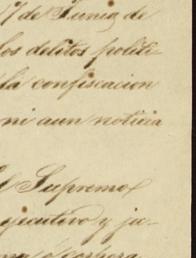 17 de Junio de
los delitos politi-
la confiscacion
ni aun noticia
Supremo
ejecutivo y ju-